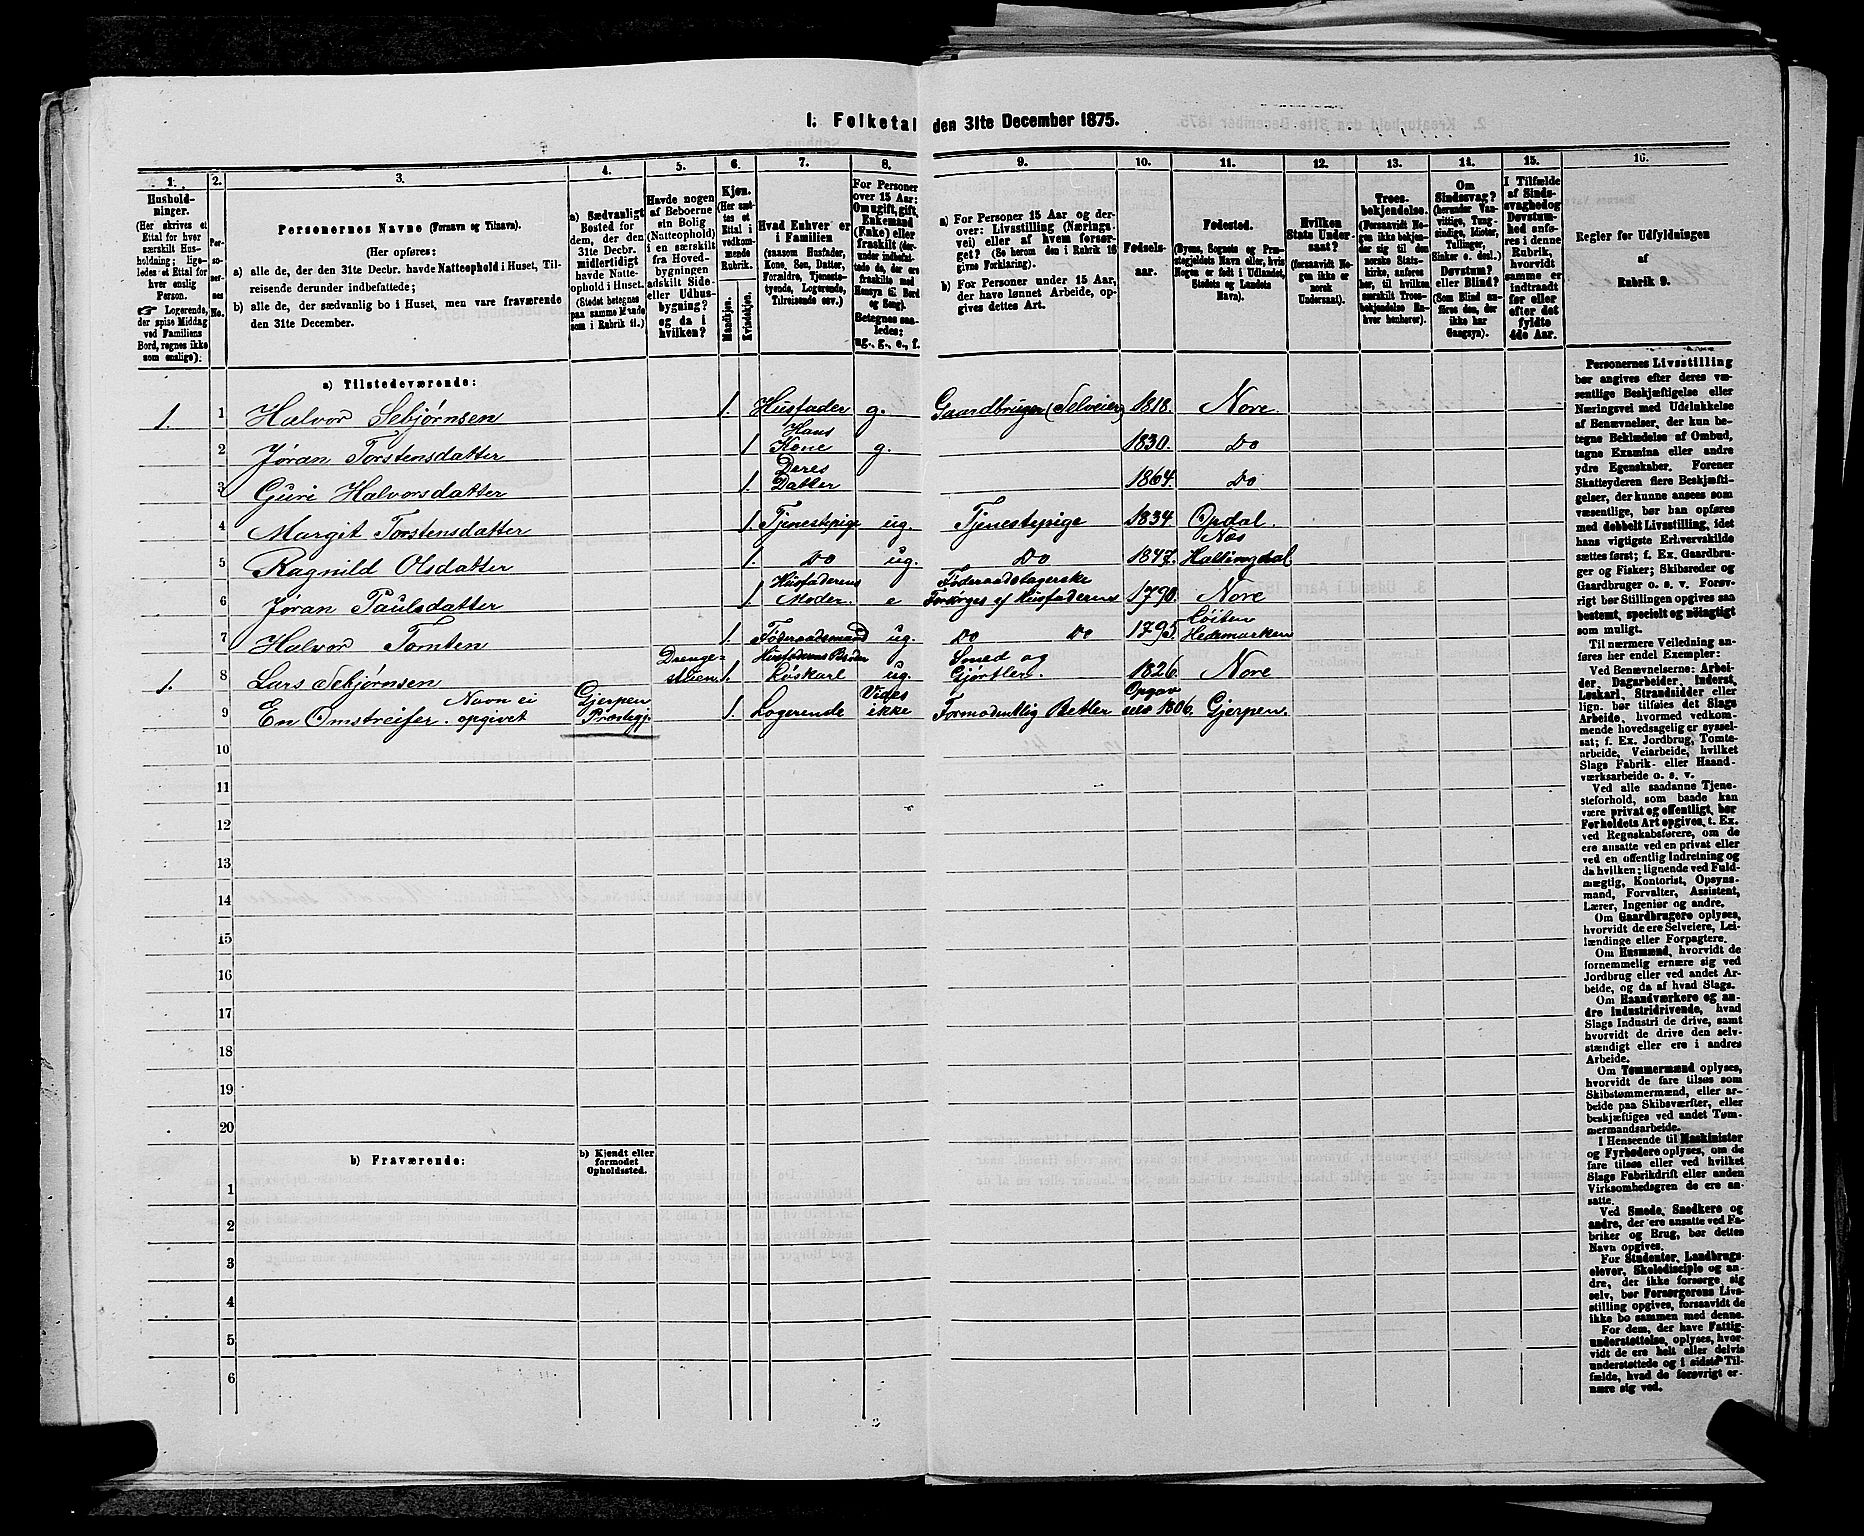 1. Folketal den 31te December 1875.
1. 2. 3. 4. 5. 6. 7. 8. 9. 10. 11. 12. 13. 14. 15. 16.
Hushold-
ninger.
(Her skrives et
Ettal for hver
særskilt Hus-
holdning; lige-
ledes et Ettal for
hver enslig
Person.
☞ Logerende,
der spise Middag
ved Familiens
Bord, regnes ikke
som enslige).
Per-
so-
ner-
nes
No.
Personernes Navne (Fornavn og Tilnavn).
(Her opføres:
a) alle de, der den 31te Decbr. havde Natteophold i Huset, Til-
reisende derunder indbefattede;
b) alle de, der sædvanlig bo i Huset, men vare fraværende
den 31te December.
a) Sædvanligt
Bosted for
dem, der den
31te Decbr.
midlertidigt
havde Natte-
ophold i Huset.
(Stedet betegnes
paa samme Maade
som i Rubrik 11.)
Havde nogen
af Beboerne
sin Bolig
(Natteophold)
i en særskilt
fra Hoved-
bygningen
adskilt Side-
eller Udhus-
bygning?
og da i
hvilken?
Kjøn.
(Her sæt-
tes et
Ettal i
vedkom-
mende
Rubrik.
Mandkjøn.
Kvindekjøn.
Hvad Enhver er
i Familien
(saasom Husfader,
Kone, Søn, Datter,
Forældre, Tjeneste-
tyende, Logerende,
Tilreisende osv.)
For Personer
over 15 Aar:
Om ugift, gift,
Enkemand
(Enke) eller
fraskilt (der-
under indbefat-
tede de, der ere
fraskilte med
Hensyn til Bord
og Seng).
Betegnes saa-
ledes:
ug., g., e., f.
a) For Personer 15 Aar og der-
over: Livsstilling (Nærings-
vei) eller af hvem forsør-
get? (Se herom den i Rubrik 16
givne Forklaring).
b) For Personer under 15 Aar,
der have lønnet Arbeide, op-
gives dettes Art.
Fødsels-
aar.
Fødested.
(Byens, Sognets og Præ-
stegjeldets Navn eller, hvis
Nogen er født i Udlandet,
Stedets og Landets
Navn).
Hvilken
Stats Under-
saat?
(forsaavidt No-
gen ikke er
norsk
Undersaat).
Troes-
bekjendelse.
(Forsaavidt No-
gen ikke bekjen-
der sig til den
norske Stats-
kirke, anføres
her, til hvilken
særskilt Troes-
bekjendelse En-
hver henhører).
Om
Sindssvag?
(herunder Van-
vittige, Tung-
sindige, Idioter,
Tullinger,
Sinker o. desl.)
Døvstum?
eller Blind?
(Som Blind an-
føres den, der
ikke har
Gangsyn).
I Tilfælde
af Sinds-
svaghed og
Døvstum-
hed anfø-
res i denne
Rubrik,
hvorvidt
samme er
indtraadt
før eller
efter det
fyldte
4de Aar.
Regler for Udfyldningen
af
Rubrik 9.
a) Tilstedeværende:
1. 1 Halvor Sebjørnsen 1. Husfader g. Gaardbruger (Selveier) 1818. Nore.
2 Jøran Torstensdatter 1 Hans Kone g. 1830. Do
3 Guri Halvorsdatter 1. Deres Datter 1864. Do.
4 Margit Torstensdatter 1. Tjenestepige ug. Tjenestepige 1834. Opdal.
5 Ragnild Olsdatter 1. Do ug. Do 1847. Næs Hallingdal
6 Jøran Paulsdatter 1. Husfaderens Moder. e Føderaadstagerske Forsørges af Husfaderens 1790. Nore
7 Halvor Tomten 1. Føderaadsmand ug. Do Do 1795. Løiten Hedemarken
1. 8 Lars Sebjørnsen Drenge-stuen. 1. Husfaderens Broder Løskarl ug. Smed og Gjørtler. 1826. Nore
9 En Omstreifer. Navn ei opgivet Gjerpen Præstegj. 1. Logerende Vides ikke Formodentlig Betler Opgav 1806. Gjerpen.
10
11
12
13
14
15
16
17
18
19
20
b) Fraværende:
b) Kjendt eller
formodet
Opholdssted.
1
2
3
4
5
6
Personernes Livsstilling
bør angives efter deres væ-
sentlige Beskjæftigelse eller
Næringsvei med Udelukkelse
af Benævnelser, der kun be-
tegne Beklædelse af Ombud,
tagne Examina eller andre
ydre Egenskaber. Forener
Skatteyderen flere Beskjæfti-
gelser, der kunne ansees som
væsentlige, bør han opføres
med dobbelt Livsstilling, idet
hans vigtigste Erhvervskilde
sættes først; f. Ex. Gaardbru-
ger og Fisker; Skibsreder og
Gaardbruger o. s. v. Forøv-
rigt bør Stillingen opgives saa
bestemt, specielt og nøiagtigt
som muligt.
Til nærmere Veiledning an-
føres her endel Exempler:
Ved Benævnelserne: Arbei-
der, Dagarbeider, Inderst,
Løskarl, Strandsidder eller
lign. bør tilføies det Slags
Arbeide, hvormed vedkom-
mende hovedsagelig er syssel-
sat; f. Ex. Jordbrug, Tomte-
arbeide, Veiarbeide, hvilket
Slags Fabrik- eller Haand-
værksarbeide o. s. v.
Ved alle saadanne Tjene-
steforhold, som baade kan
være privat og offentligt, bør
Forholdets Art opgives, t. Ex.
ved Regnskabsførere, om de
ere ansatte ved en privat eller
ved en offentlig Indretning og
da hvilken; lignende ved Fuld-
mægtig, Kontorist, Opsyns-
mand, Forvalter, Assistent,
Lærer, Ingeniør og andre.
Om Gaardbrugere oplyses,
hvorvidt de ere Selveiere, Lei-
lændinge eller Forpagtere.
Om Husmænd, hvorvidt de
fornemmelig ernære sig ved
Jordbrug eller ved andet Ar-
beide, og da af hvad Slags.
Om Haandværkere og an-
dre Industridrivende, hvad
Slags Industri de drive, samt
hvorvidt de drive den selv-
stændigt eller ere i andres
Arbeide.
Om Tømmermænd oplyses,
hvorvidt de fare tilsøs som
Skibstømmermænd, eller ar-
beide paa Skibsværfter, eller
beskjæftiges ved andet Tøm-
mermandsarbeide.
I Henseende til Maskinister
og Fyrbødere oplyses, om de
fare tilsøs eller ved hvilket
Slags Fabrikdrift eller anden
Virksomhedsgren de ere an-
satte.
Ved Smede, Snedkere og
andre, der ere ansatte ved Fa-
briker og Brug, bør dettes
Navn opgives.
For Studenter, Landbrugs-
elever, Skoledisciple og an-
dre, der ikke forsørge sig
selv, bør Forsørgerens Livs-
stilling opgives, forsaavidt de
ikke bo sammen med denne.
For dem, der have Fattig-
understøttelse, oplyses, hvor-
vidt de ere helt eller delvis
understøttede og i sidste Til-
fælde, hvad de forøvrigt er-
nære sig ved.